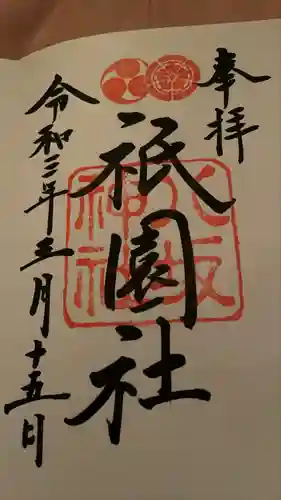 奉拝
祇園社
八坂
神社
令和三年三月十五日